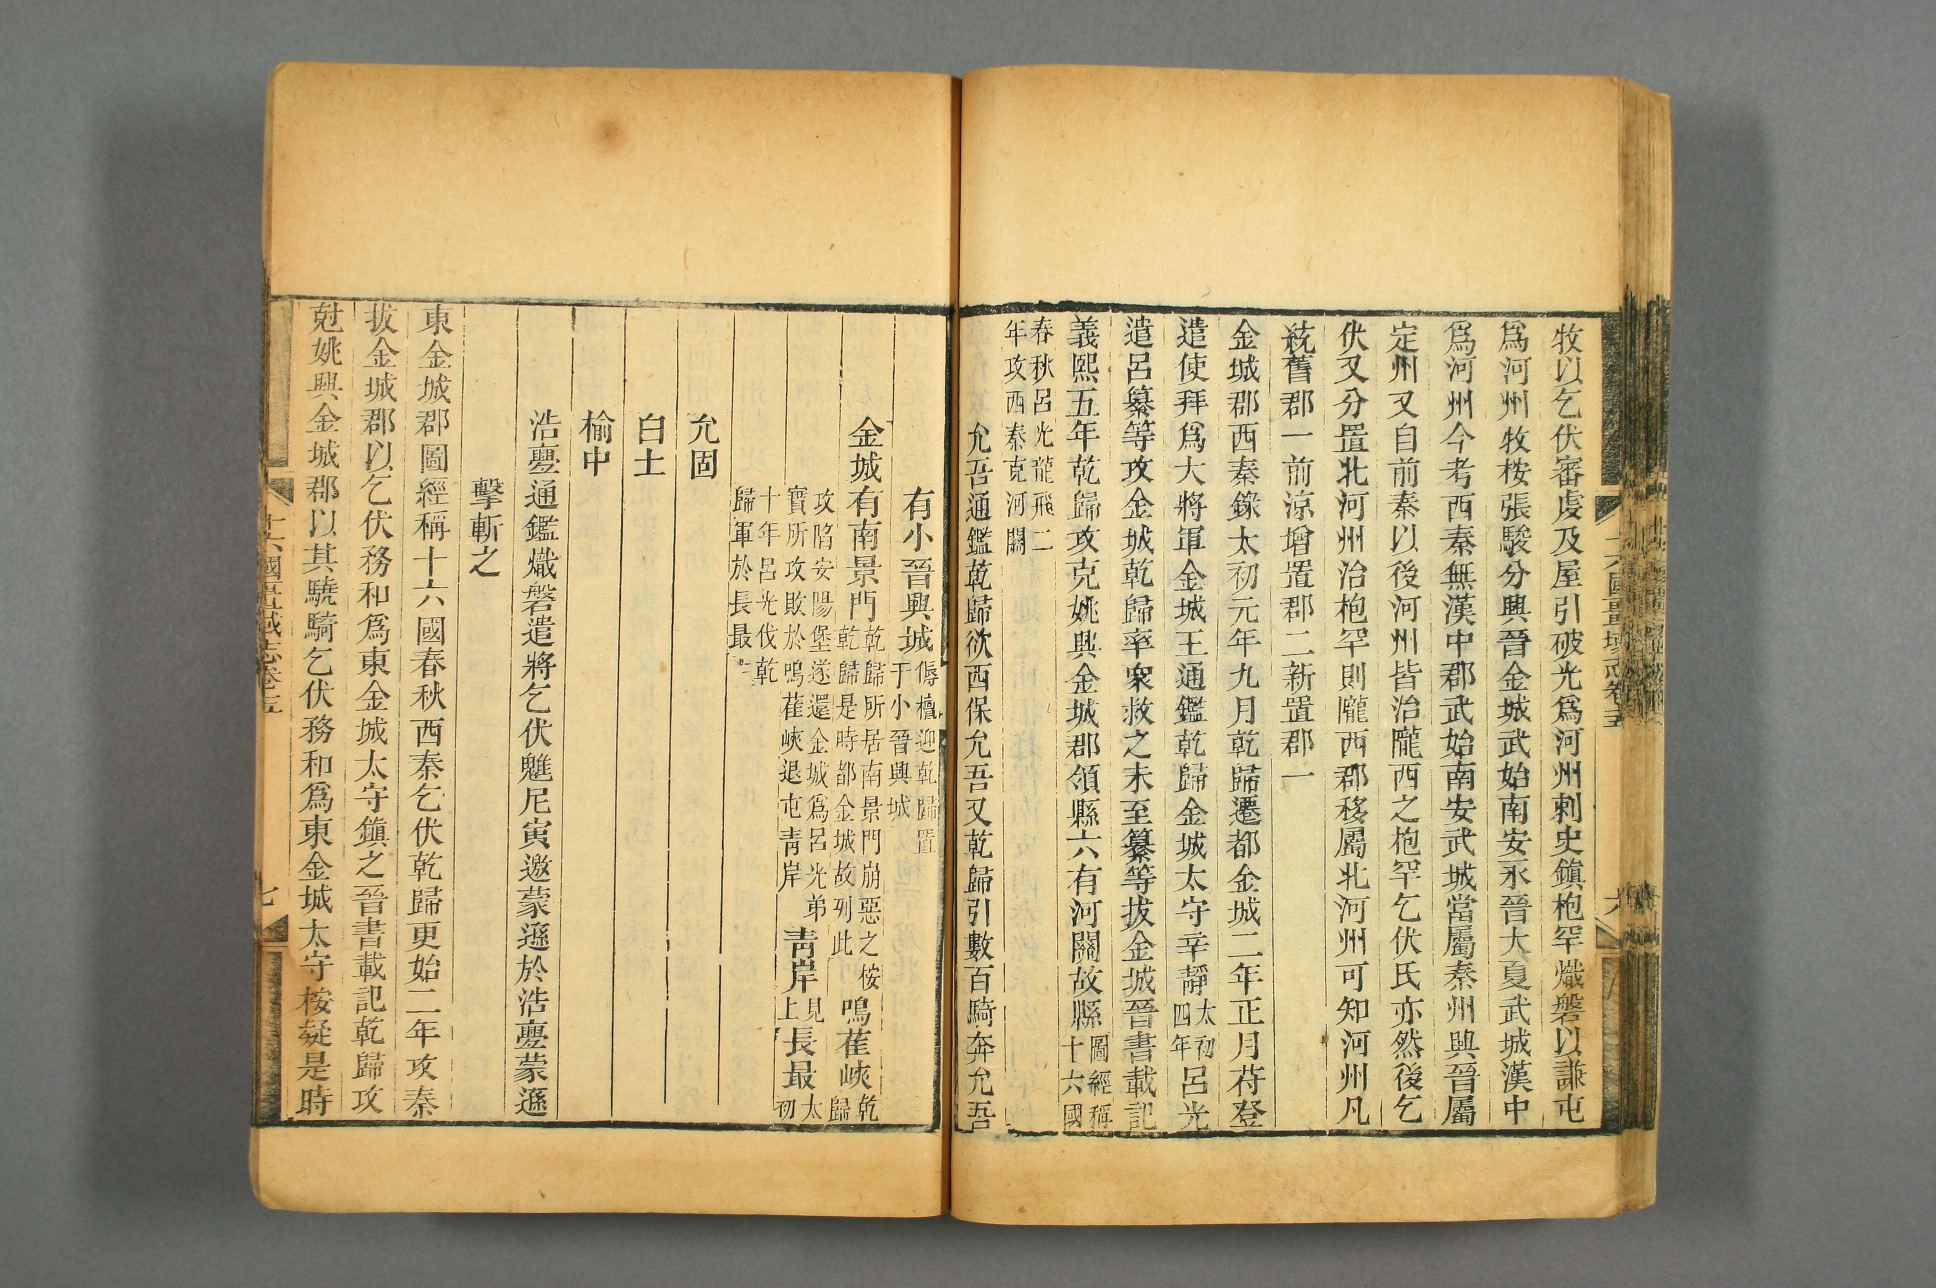 牧以乞伏審虔及屋引破光爲河州刺史鎮枹罕熾磐以謙屯
爲河州牧桉張駿分興晉金城武始南安永晉大夏武城漢中
爲河州今考西秦無漢中郡武始南安武城當屬秦州興晉屬
定州又自前秦以後河州皆治隴西之枹罕乞伏氏亦然後乞
伏又分置北河州治枹罕則隴西郡移屬北河州可知河州凡
統舊郡一前涼增置郡二新置郡一
金城郡西秦錄太初元年九月乾歸遷都金城二年正月苻登
遣使拜爲大將軍金城王通鑑乾歸金城太守辛靜太初四年呂光
遣呂纂等攻金城乾歸率衆救之未至纂等拔金城晉書載記
義熙五年乾歸攻克姚興金城郡領縣六有河關故縣圖經稱十六國
春秋呂光龍飛二年攻西秦克河關
允吾通鑑乾歸欲西保允吾又乾歸引數百騎奔允吾
有小晉興城傉檀迎乾歸置于小晉興城
金城有南景門乾歸所居南景門崩惡之桉乾歸是時都金城故列此鳴雀峽乾歸
攻陷安陽堡遂還金城爲呂光弟寶所攻敗於鳴雀峽退屯靑岸靑岸見上長最太初
十年呂光伐乾歸軍於長最
允固
白土
榆中
浩亹通鑑熾磐遣將乞伏魋尼寅邀蒙遜於浩亹蒙遜
擊斬之
東金城郡圖經稱十六國春秋西秦乞伏乾歸更始二年攻秦
拔金城郡以乞伏務和爲東金城太守鎮之晉書載記乾歸攻
尅姚興金城郡以其驍騎乞伏務和爲東金城太守桉疑是時
十六國疆域志卷五
六
十六國疆域志卷五
七